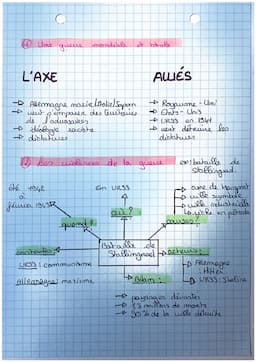 ① Une guerre mondiale et totale
L'AXE
ALLIÉS
→ Allemagne nazie/Italie/Japon
→ veut s'emparer des territoires de l'adversaire
→ idéologie raciste
→ dictatures
→ Royaume-Uni
→ Etats-Unis
→ URSS en 1941
→ veut détruire les dictatures
② Les violences de la guerre
ex: bataille de Stalingrad
été 1942
à
février 1943
En URSS
quand?
où?
causes?
→ ville symbole
→ ville industrielle
→ riche en pétrole
Bataille de Stalingrad
contexte:
URSS: communisme
Allemagne: nazisme
acteurs:
→ Allemagne
Hitler
→ URSS: Staline
bilan:
→ paysages dévastés
millions de morts
→ 90% de la ville détruite